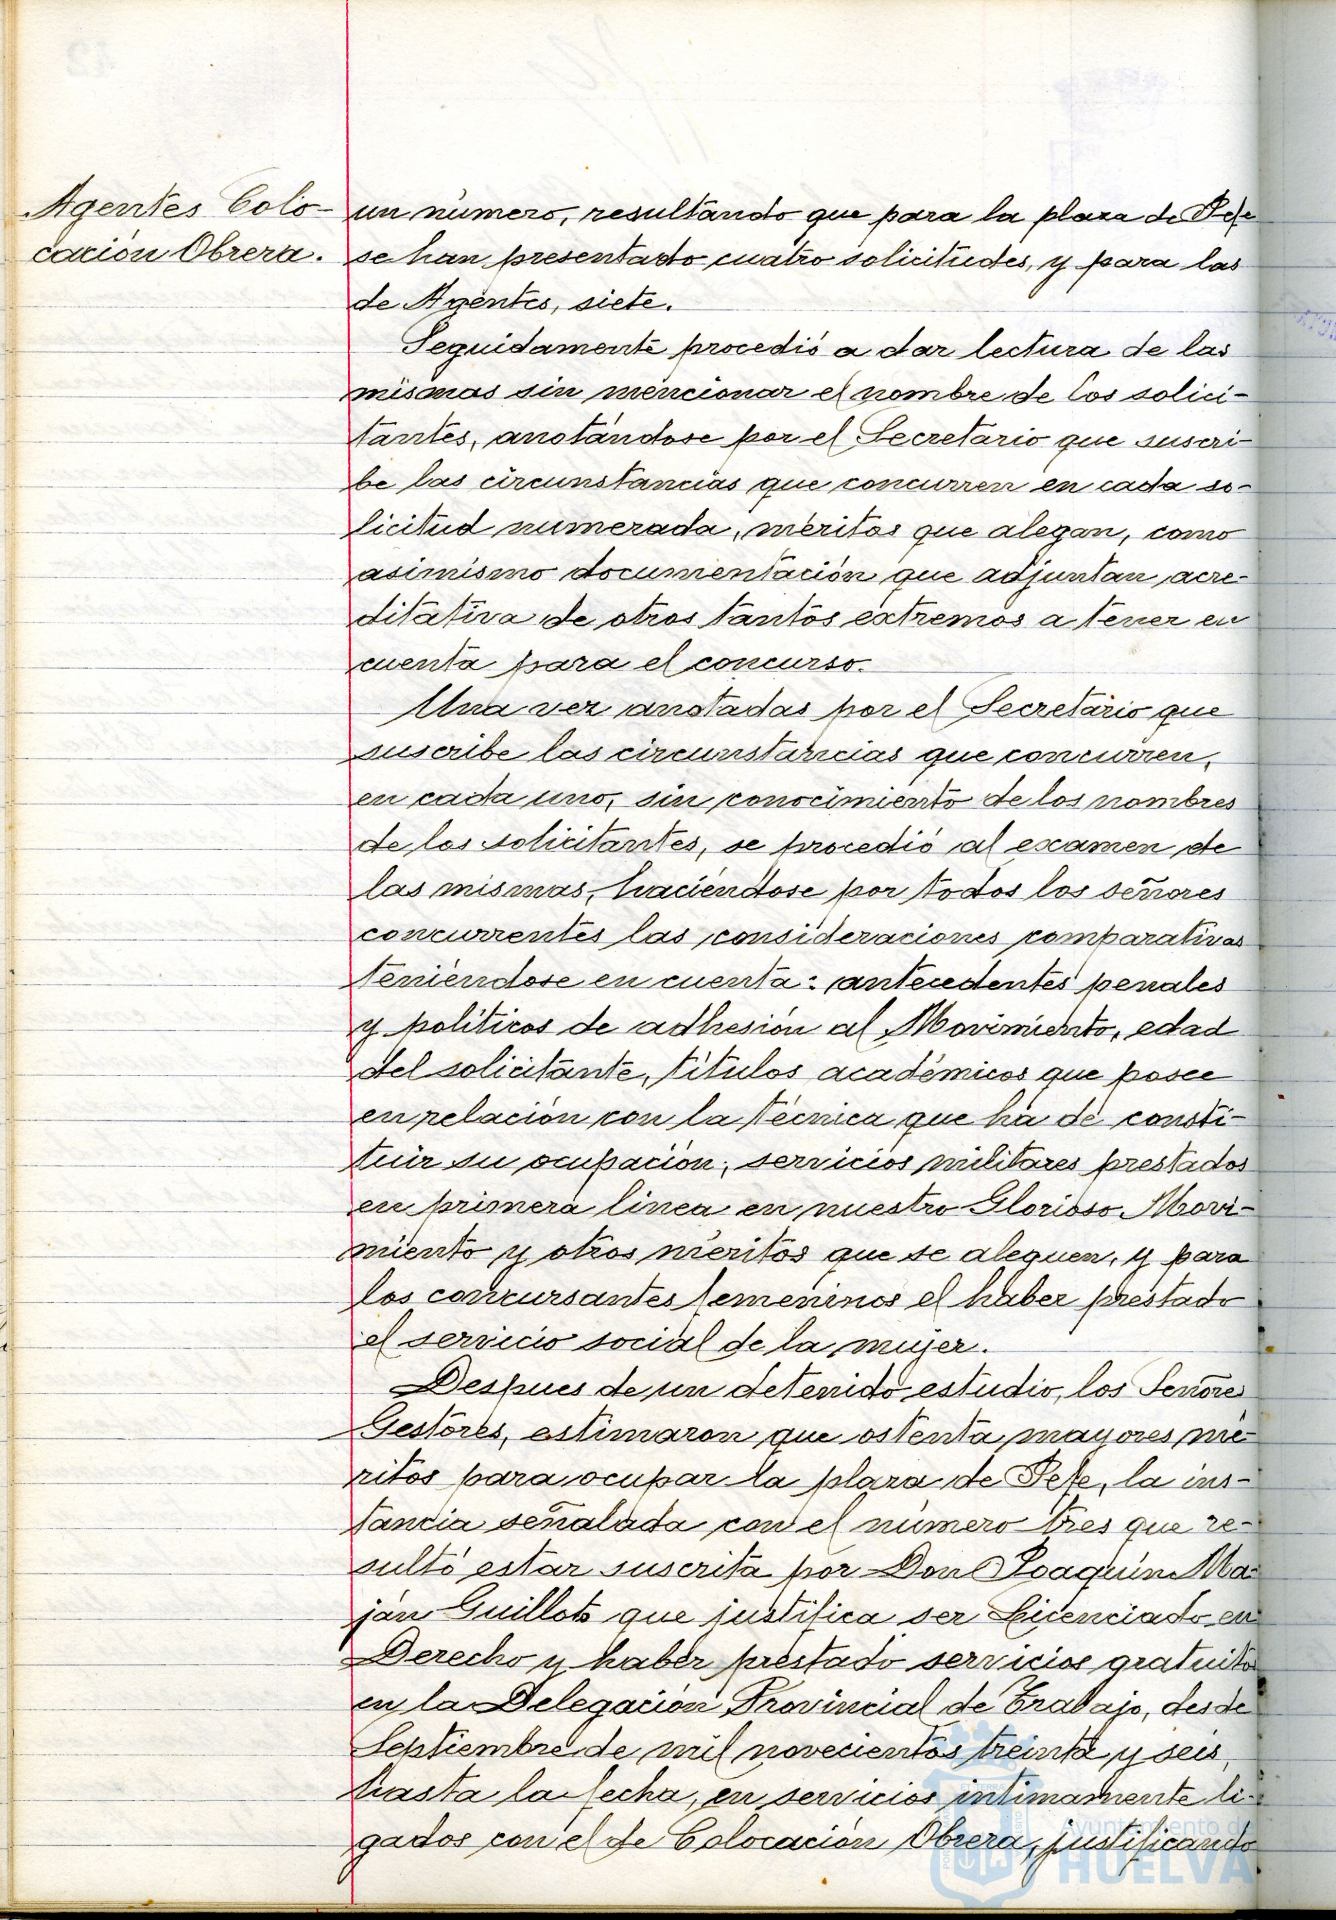 Agentes Colo-
cación Obrera.
un número, resultando que para la plaza de Jefe
se han presentado cuatro solicitudes, y para las
de Agentes, siete.
Seguidamente procedió a dar lectura de las
mismas sin mencionar el nombre de los solici-
tantes, anotándose por el Secretario que suscri-
be las circunstancias que concurren en cada so-
licitud numerada, méritos que alegan, como
asimismo documentación que adjuntan acre-
ditativa de otros tantos extremos a tener en
cuenta para el concurso.
Una vez anotadas por el Secretario que
suscribe las circunstancias que concurren,
en cada uno, sin conocimiento de los nombres
de los solicitantes, se procedió al examen de
las mismas, haciéndose por todos los señores
concurrentes las consideraciones comparativas
teniéndose en cuenta: antecedentes penales
y políticos de adhesión al Movimiento, edad
del solicitante, títulos académicos que posee
en relación con la técnica que ha de consti-
tuir su ocupación; servicios militares prestados
en primera línea en nuestro Glorioso Movi-
miento y otros méritos que se aleguen, y para
los concursantes femeninos el haber prestado
el servicio social de la mujer.
Despues de un detenido estudio, los Señores
Gestores, estimaron que ostenta mayores mé-
ritos para ocupar la plaza de Jefe, la ins-
tancia señalada con el número tres que re-
sultó estar suscrita por Don Joaquín Ma-
ján Guillots que justifica ser Licenciado en
Derecho y haber prestado servicios gratuitos
en la Delegación Provincial de Trabajo, desde
Septiembre de mil novecientos treinta y seis,
hasta la fecha, en servicios intimamente li-
gados con el de Colocación Obrera, justificando
Ayuntamiento de
HUELVA